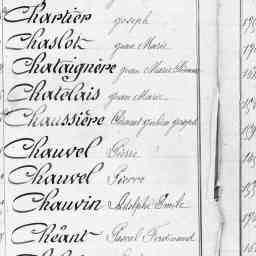 Chartier Joseph
Chaslot Jean Marie
Chataignère Jean Marie
Chatelais Jean Marie
Chaussière Clément Julien Joseph
Chauvel Pierre
Chauvel Pierre
Chauvin Adolphe Emile
Chéant Pascal Ferdinand